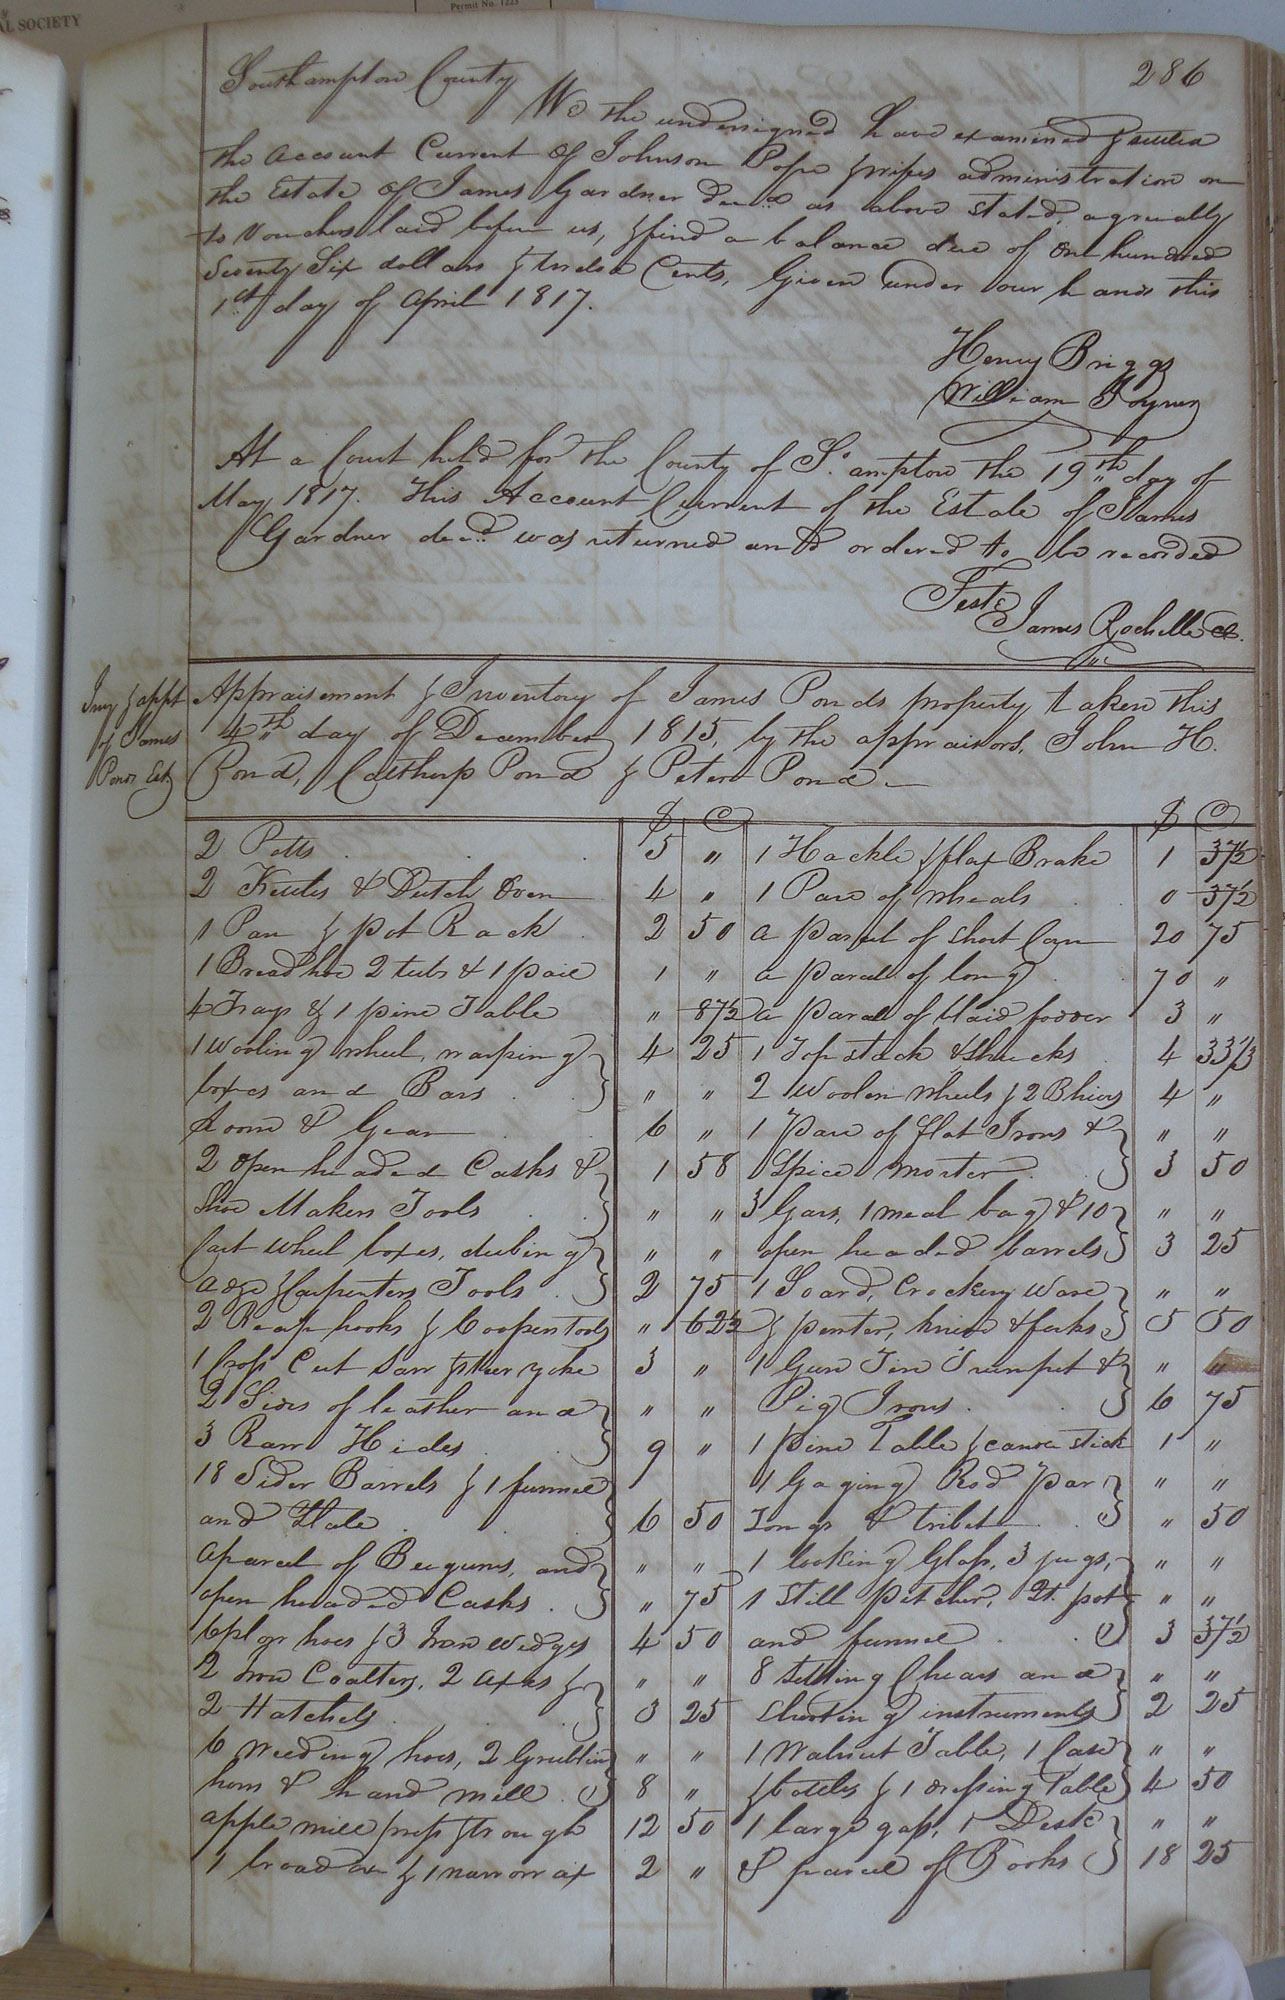 AL SOCIETY
Permit No. 1223
286
Southampton County
We the undersigned have examined & settled
the Account Current of Johnson Pope & wifes administration on
the Estate of James Gardner decd. as above stated, agreeably
to Vouchers laid before us, & find a balance due of One hundred
Seventy Six dollars & twelve Cents, Given under our hands this
1st day of April 1817.
Henry Briggs
William Joyner
At a Court held for the County of So.ampton the 19th day of
May 1817. This Account Current of the Estate of James
Gardner decd. was returned and ordered to be recorded
Teste
James Rochelle Cl.
Invy & appt
of James
Ponds Est
Appraisement & Inventory of James Ponds property taken this
4th day of December 1815, by the appraisors, John H.
Pond, Calthorp Pond & Peter Pond
$ C $ C
2 Potts 5 " 1 Hackle & flax Brake 1 37½
2 Kettles & Dutch Oven 4 " 1 Pare of wheals 0 37½
1 Pan & pot Rack 2 50 a parcel of short Corn 20 75
1 Bread hoe 2 tubs & 1 pail 1 " a parcel of long 70 "
4 Trays & 1 pine Table " 87½ a parcel of blaid fodder 3 "
1 Wooling wheel, warping 4 25 1 Top stack & shucks 4 33⅓
boxes and Bars " " 2 Woolen wheels & 2 Bhives 4 "
Loom & Gear 6 " 1 pare of flat Irons & " "
2 open headed Casks & 1 58 Spice morter 3 50
Shoe Makers Tools " " 3 Gars, 1 meal bag & 10 " "
Cart wheel boxes, dubing " " open headed barrels 3 25
adze & Carpenters Tools 2 75 1 Goard, Crockery Ware " "
2 Reap hooks & Coopers tools " 62½ & peuter, knives & forks 5 50
1 Cross Cut Saw & steer yoke 3 " 1 Gun Tin Trumpet & " "
2 Sides of leather and " " Pig Irons 6 75
3 Raw Hides 9 " 1 pine Table & canole stick 1 "
18 Sider Barrels & 1 funnel 1 Gaging Rod par " "
and Hale 6 50 Tongs & tribet " 50
a parcel of Beegums, and " " 1 looking Glass, 3 jugs, " "
open headed Casks " 75 1 Still pitcher, Qt. pot " "
6 plow hoes & 3 Iron wedges 4 50 and funnel 3 37½
2 Iron Coalters, 2 axes & " " 8 Setting Chears and " "
2 Hatchets 3 25 Shooting instruments 2 25
6 Weeding hoes, 2 Grubbin " " 1 Walnut Table, 1 Case " "
hoes & hand mill 8 " & bottles & 1 dressing Table 4 50
apple mill press & trough 12 50 1 large gass, 1 Desk " "
1 broad ax & 1 narrow ax 2 " & parcel of Books 18 25